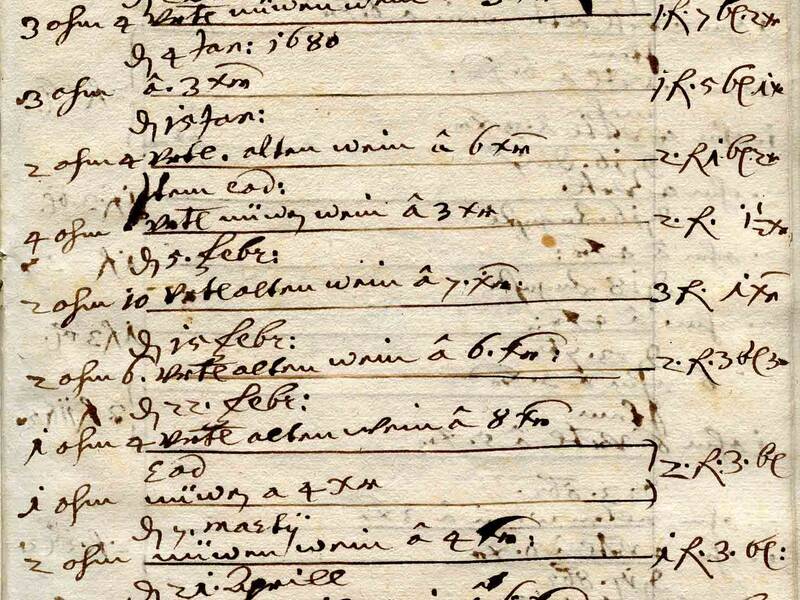 3 ohm 4 Vrtl nüwen wein 1 f. 7 bz. 2 xr
dz 4 Jan: 1680
3 ohm â. 3 xr 1 f. 5 bz 1 x
dz 15 Jan:
2 ohm 4 Vrtl. alten wein â 6 xr 2. f. 1 bz 2 xr
Item eod:
4 ohm Vrtl nüwen wein â 3 xr 2. f. 1½ xr
dz 5. febr:
2 ohm 10 Vrtl alten wein â 7. xr: 3 f. 1 xr
dz 15 febr:
2 ohm 6. Vrtl alten wein â 6. xr: 2. f. 3 bz 3
dz 22. febr:
1 ohm 4 Vrtl alten wein â 8 xr
Eod 2. f. 3. bz
1 ohm nüwen a 4 xr
dz 7. martij
2 ohm nüwen wein â 4 xr: 1 f. 3. bz:
dz 21. Aprill